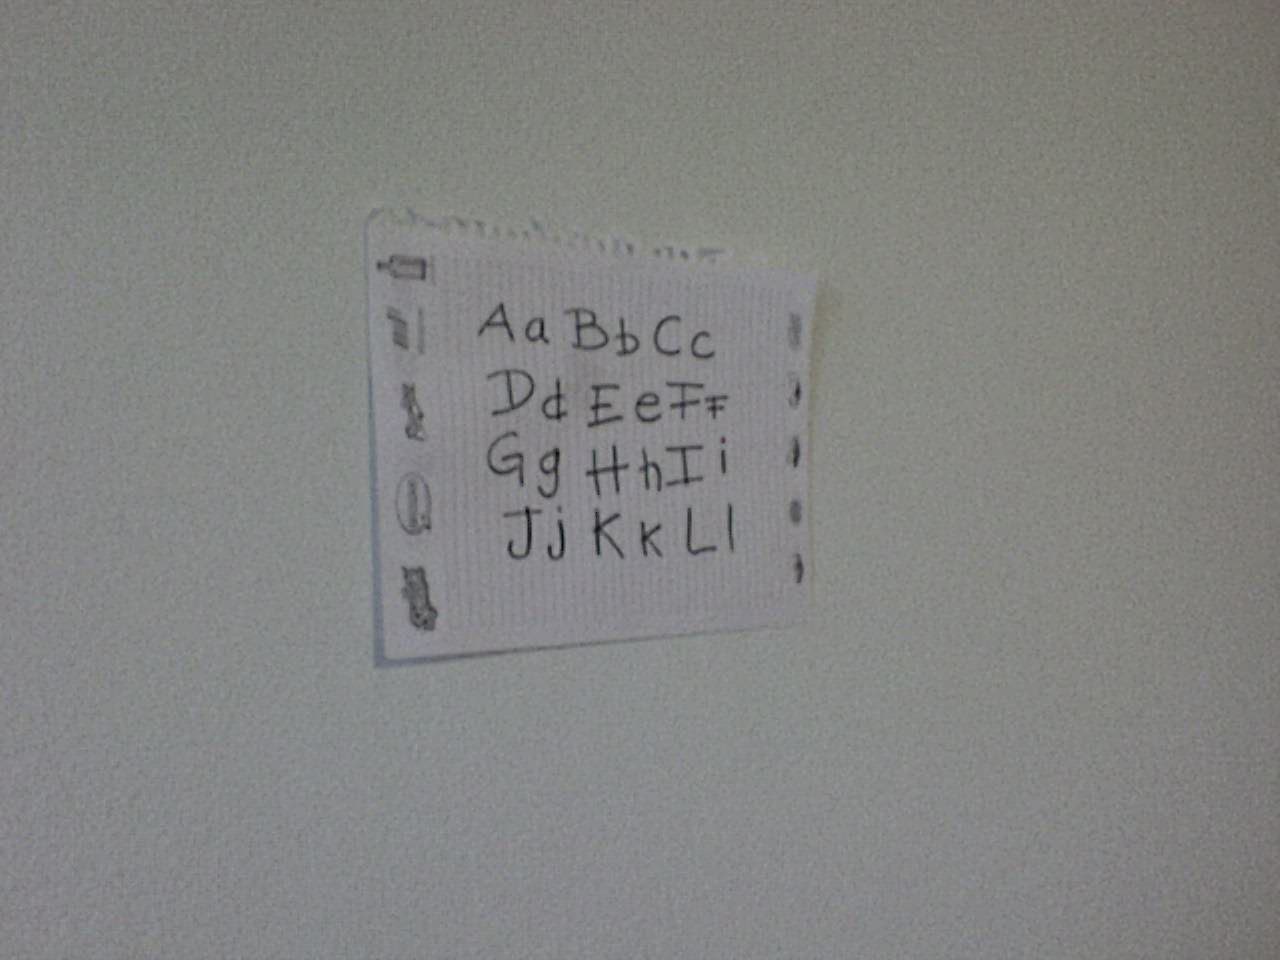 Aa Bb Cc
Dd Ee FF
Gg Hh Ii
Jj Kk Ll